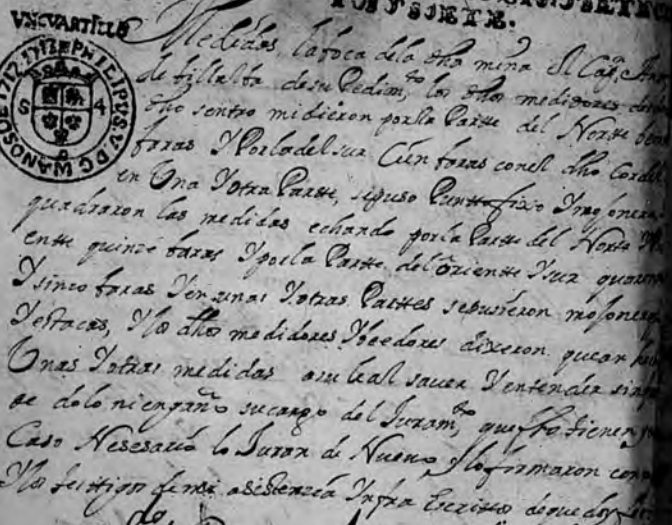 VNCVARTILLO
Y SIETE.
PHILIPVS.V.DG
S 4
Medidas, la boca dela dha mina El Cap.n
de Villalta de su Pedim.to los dhos medidores
dho sentro midieron por la Parte del Norte
baras Y Por la del sur Cien baras con el dho Cordel
en Una Y otra Parte, se puso Punto fixo Y mojonera
quadraron las medidas echando por la Parte del Norte
ente quinze baras Y por la Parte del oriente Y sur
Y sinco baras Y en unas Y otras Partes se pusieron mojoneras
Y estacas, Y los dhos medidores Y beedores dixeron que an
Unas Y otras medidas a su leal saver Y entender sin
se dolo ni engaño su cargo del Juram.to que fho tienen
Caso Nesesario lo Juran de Nuevo Y lo firmaron
Y los testigos de mi asistencia Ynfra Escriptos de que doy